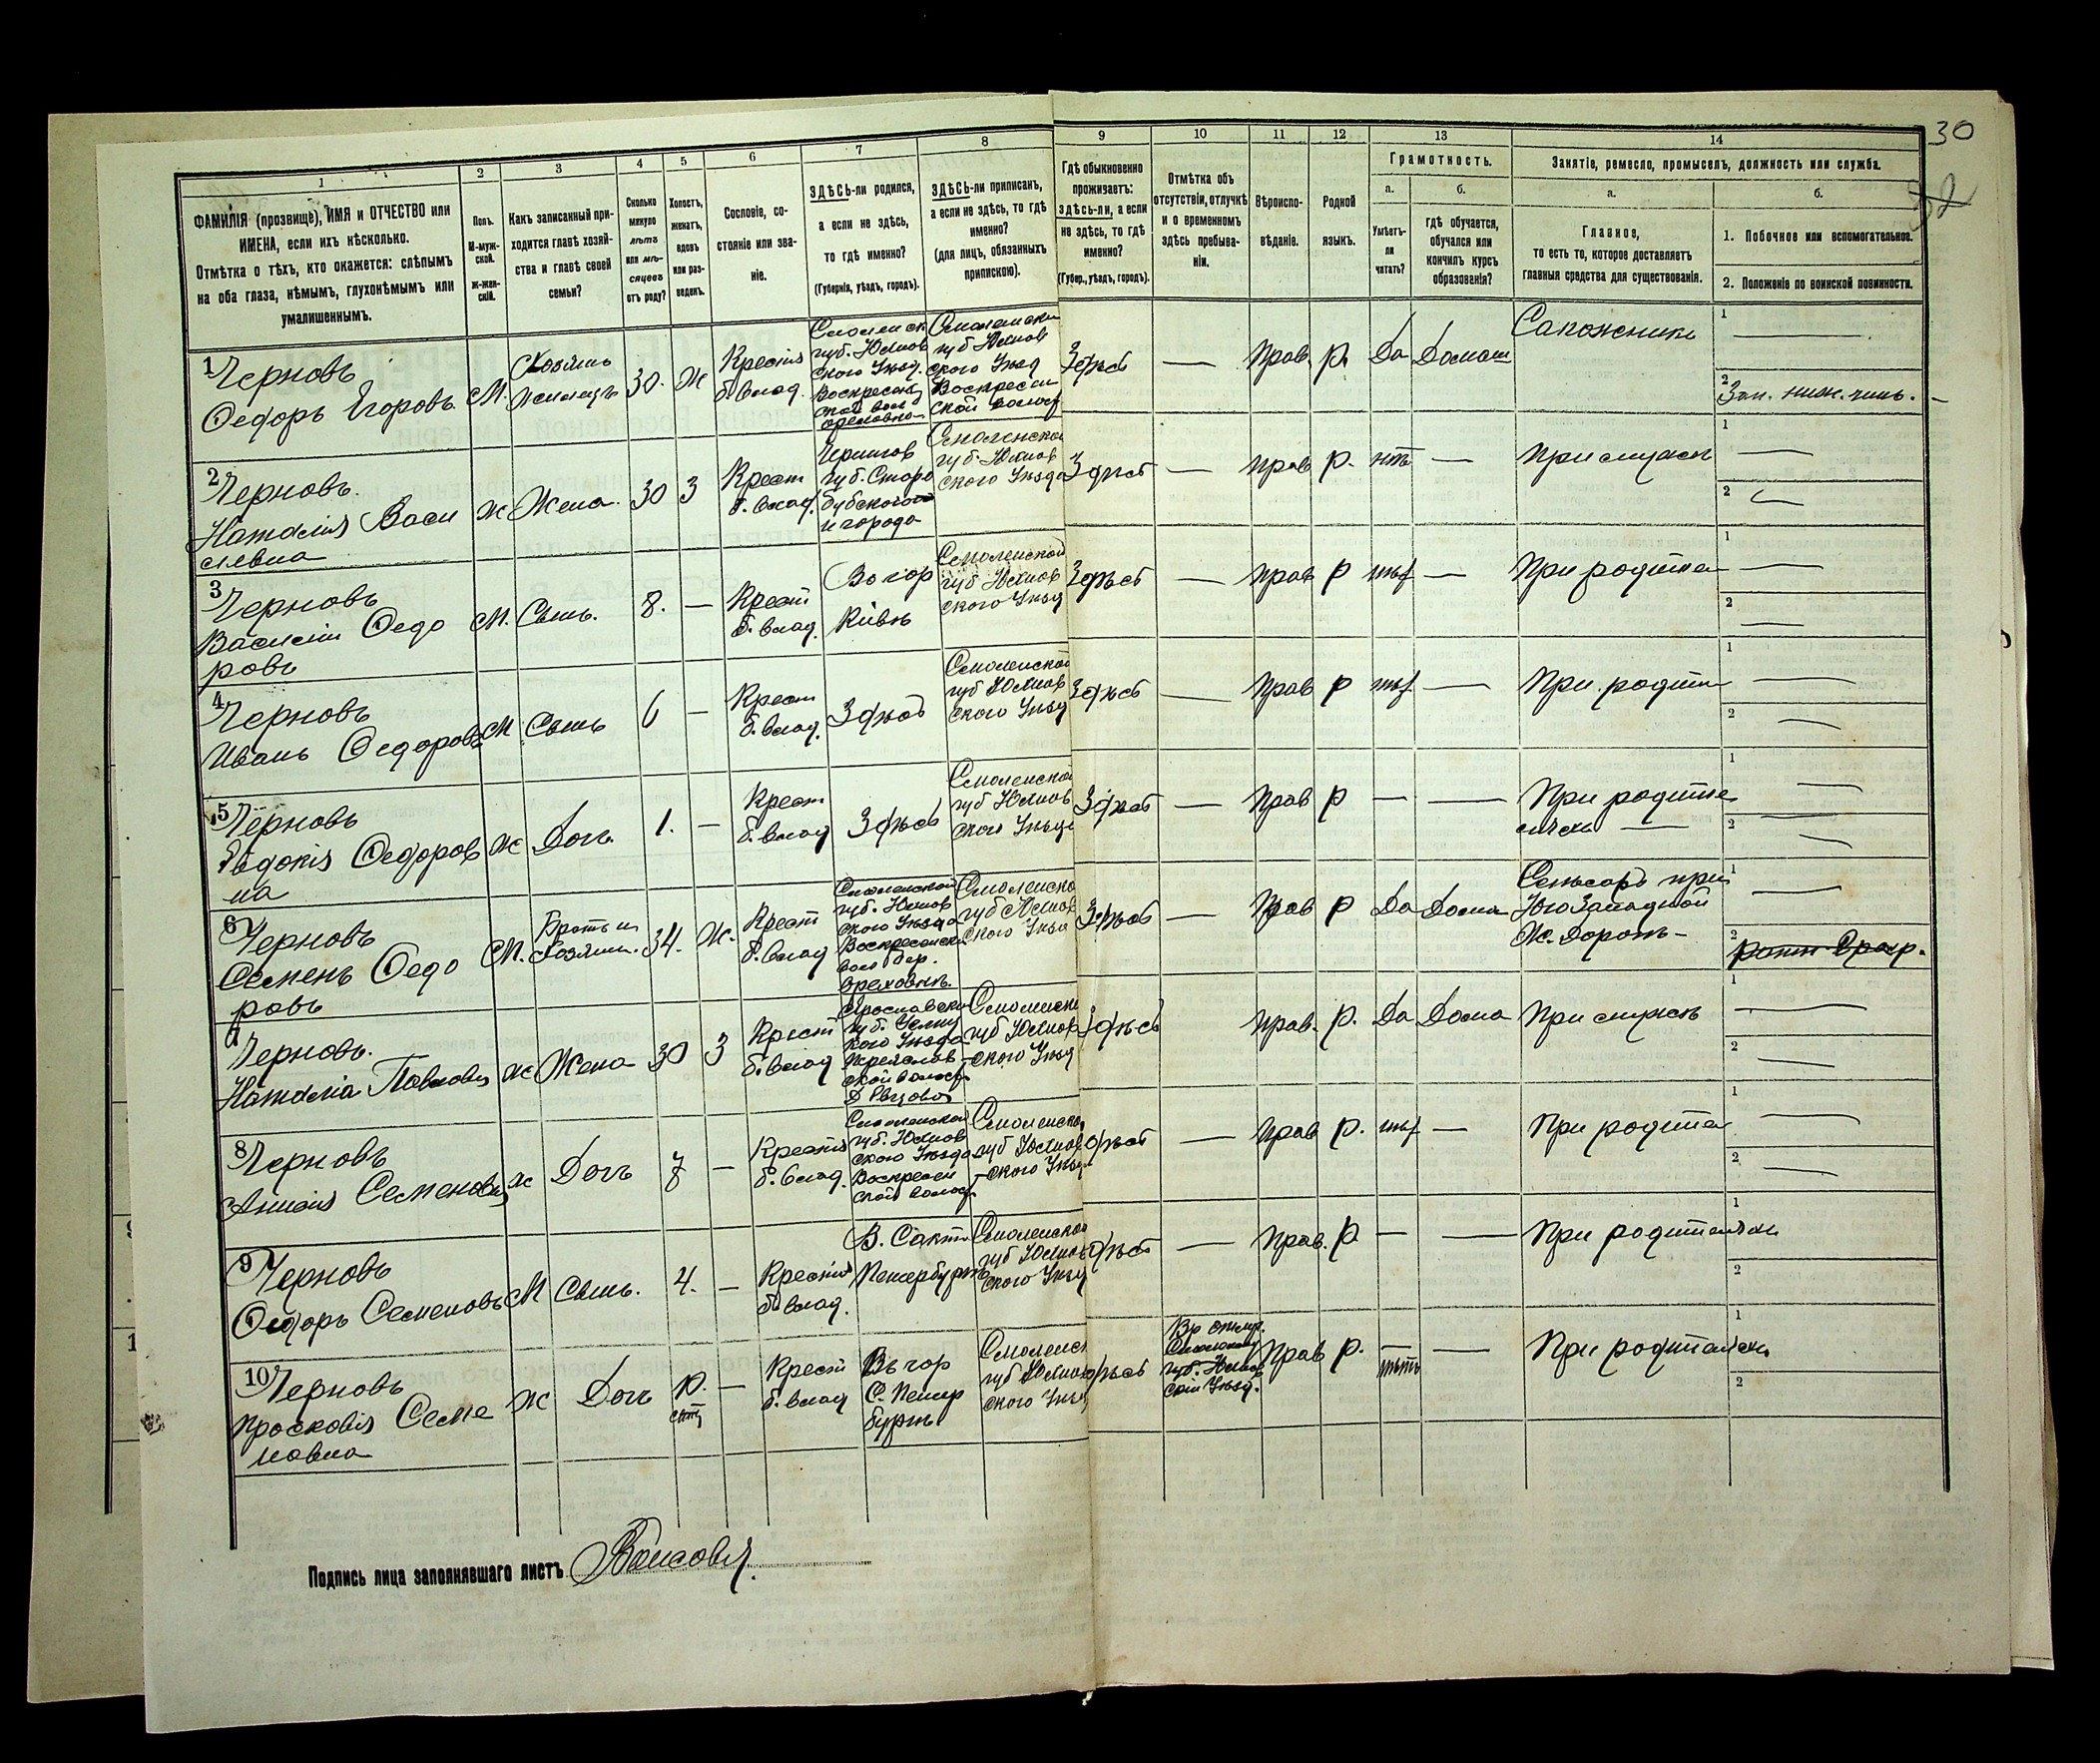 30
32
1 2 3 4 5 6 7 8 9 10 11 12 13 14
ФАМИЛІЯ (прозвище), ИМЯ и ОТЧЕСТВО или
ИМЕНА, если ихъ нѣсколько.
Отмѣтка о тѣхъ, кто окажется: слѣпымъ
на оба глаза, нѣмымъ, глухонѣмымъ или
умалишеннымъ.
Полъ.
М-муж-
ской.
Ж-жен-
скій.
Какъ записанный при-
ходится главѣ хозяй-
ства и главѣ своей
семьи?
Сколько
минуло
лѣтъ
или мѣ-
сяцевъ
отъ роду?
Холостъ,
женатъ,
вдовъ
или раз-
веденъ.
Сословіе, со-
стояніе или зва-
ніе.
ЗДѢСЬ-ли родился,
а если не здѣсь,
то гдѣ именно?
(Губернія, уѣздъ, городъ).
ЗДѢСЬ-ли приписанъ,
а если не здѣсь, то гдѣ
именно?
(для лицъ, обязанныхъ
припискою).
Гдѣ обыкновенно
проживаетъ:
здѣсь-ли, а если
не здѣсь, то гдѣ
именно?
(Губер., уѣздъ, городъ).
Отмѣтка объ
отсутствіи, отлучкѣ
и о временномъ
здѣсь пребыва-
ніи.
Вѣроиспо-
вѣданіе.
Родной
языкъ.
Грамотность.
а.
Умѣетъ-
ли
читать?
б.
Гдѣ обучается,
обучался или
кончилъ курсъ
образованія?
Занятіе, ремесло, промыселъ, должность или служба.
а.
Главное,
то есть то, которое доставляетъ
главныя средства для существованія.
б.
1. Побочное или вспомогательное.
2. Положеніе по воинской повинности.
1 Черновъ
Ѳедоръ Егоровъ
М.
Хозяинъ
30. Ж
Крестья
б. влад.
Смоленск
губ. Юхнов
скаго Уѣзд.
Воскресен
ской вол
Смоленск
губ Юхнов
скаго Уѣзд
Воскресен
ской волост
Здѣсь — Прав. р. Да Домаш
Сапожникъ
1 —
2 Зап. ниж. чинъ. —
2 Черновъ.
Наталія Васи
льевна
Ж Жена. 30 З
Крест
б. влад.
Чернигов
губ. Старо
дубского
и города
Смоленской
губ. Юхнов
ского Уѣзда
Здѣсь — Прав р. нѣтъ —
При мужѣ
1 —
2 —
3 Черновъ
Василій Ѳедо
ровъ
М. Сынъ. 8. —
Крест
б. влад.
Во гор
Кіевѣ
Смоленской
губ Юхнов
ского Уѣзд
Здѣсь — Прав р —
При родите
1 —
2 —
4 Черновъ
Иванъ Ѳедоровъ
М Сынъ 6 —
Крест
б. влад.
Здѣсь
Смоленской
губ Юхнов
ского Уѣзд
Здѣсь — Прав р —
При родите
1 —
2 —
5 Черновъ
Евдокія Ѳедоров
на
Ж Дочь. 1. —
Крест
б. влад
Здѣсь
Смоленской
губ Юхнов
ского Уѣзд
Здѣсь — Прав р — —
При родите
ляхъ —
1 —
2 —
6 Черновъ
Семенъ Ѳедо
ровъ
М.
Братъ
Хозяин. 34. Ж.
Крест
б. влад
Смоленской
губ. Юхнов
ского Уѣзда
Воскресенск
вол дер.
Смоленско
губ Юхнов
ского Уѣзд
Здѣсь — Прав р Да Дома
при
Юго Западной
Ж. Дорогѣ —
1 —
7 Черновъ.
Наталія Павловн
Ж Жена 30 З
Крест
б. влад
Ярославской
губ.
кого Уѣзда
ской волост
Смоленск
губ Юхнов
ского Уѣзд
Здѣсь Прав. р. Да Дома
При мужѣ
1 —
2 —
8 Черновъ
Семеновн
Ж Дочь 7 —
Крестья
б. влад.
Смоленской
губ. Юхнов
ского Уѣзда
Воскресен
ской волост
Смоленско
губ Юхнов
ского Уѣзд
Здѣсь — Прав р. —
При родите
1 —
2 —
9 Черновъ
Ѳедоръ Семеновъ
М Сынъ. 4. —
Крестья
б. влад.
В. Санкт
Петербургѣ
Смоленской
губ Юхнов
ского Уѣзд
Здѣсь — Прав. р — —
При родителяхъ
1
2
10 Черновъ
Просковія Семе
новна
Ж Дочь —
Крест
б. влад
Въ гор
С. Петер
бургѣ
Смоленск
губ Юхнов
ского Уѣзд
Здѣсь
Смоленск
губ. Юхнов
скій Уѣзд.
Прав р. — —
При родителяхъ
1
2
Подпись лица заполнявшаго листъ